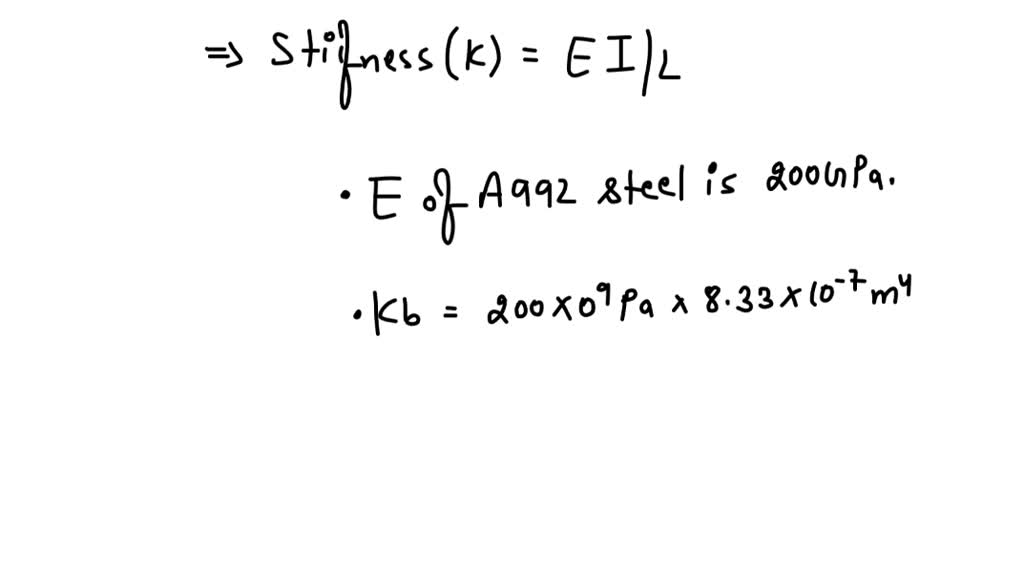 ⇒ Stifness (K) = EI/L
• E of A992 steel is 200GPa.
• Kb = 200 x 0⁹ Pa x 8.33 x 10⁻⁷ m⁴